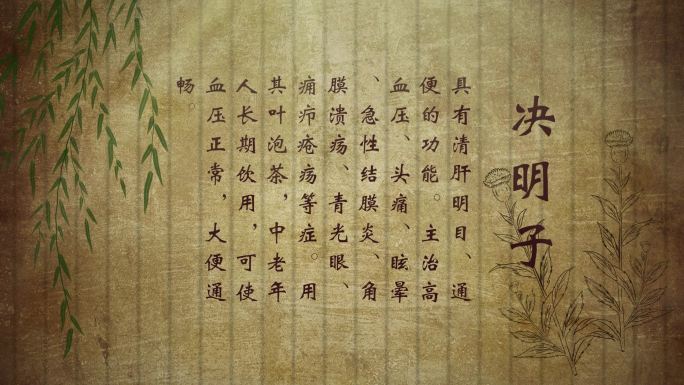 决明子
具有清肝明目、通
便的功能。主治高
血压、头痛、眩晕
、急性结膜炎、角
膜溃疡、青光眼、
痈疖疮疡等症。用
其叶泡茶，中老年
人长期饮用，可使
血压正常，大便通
畅。